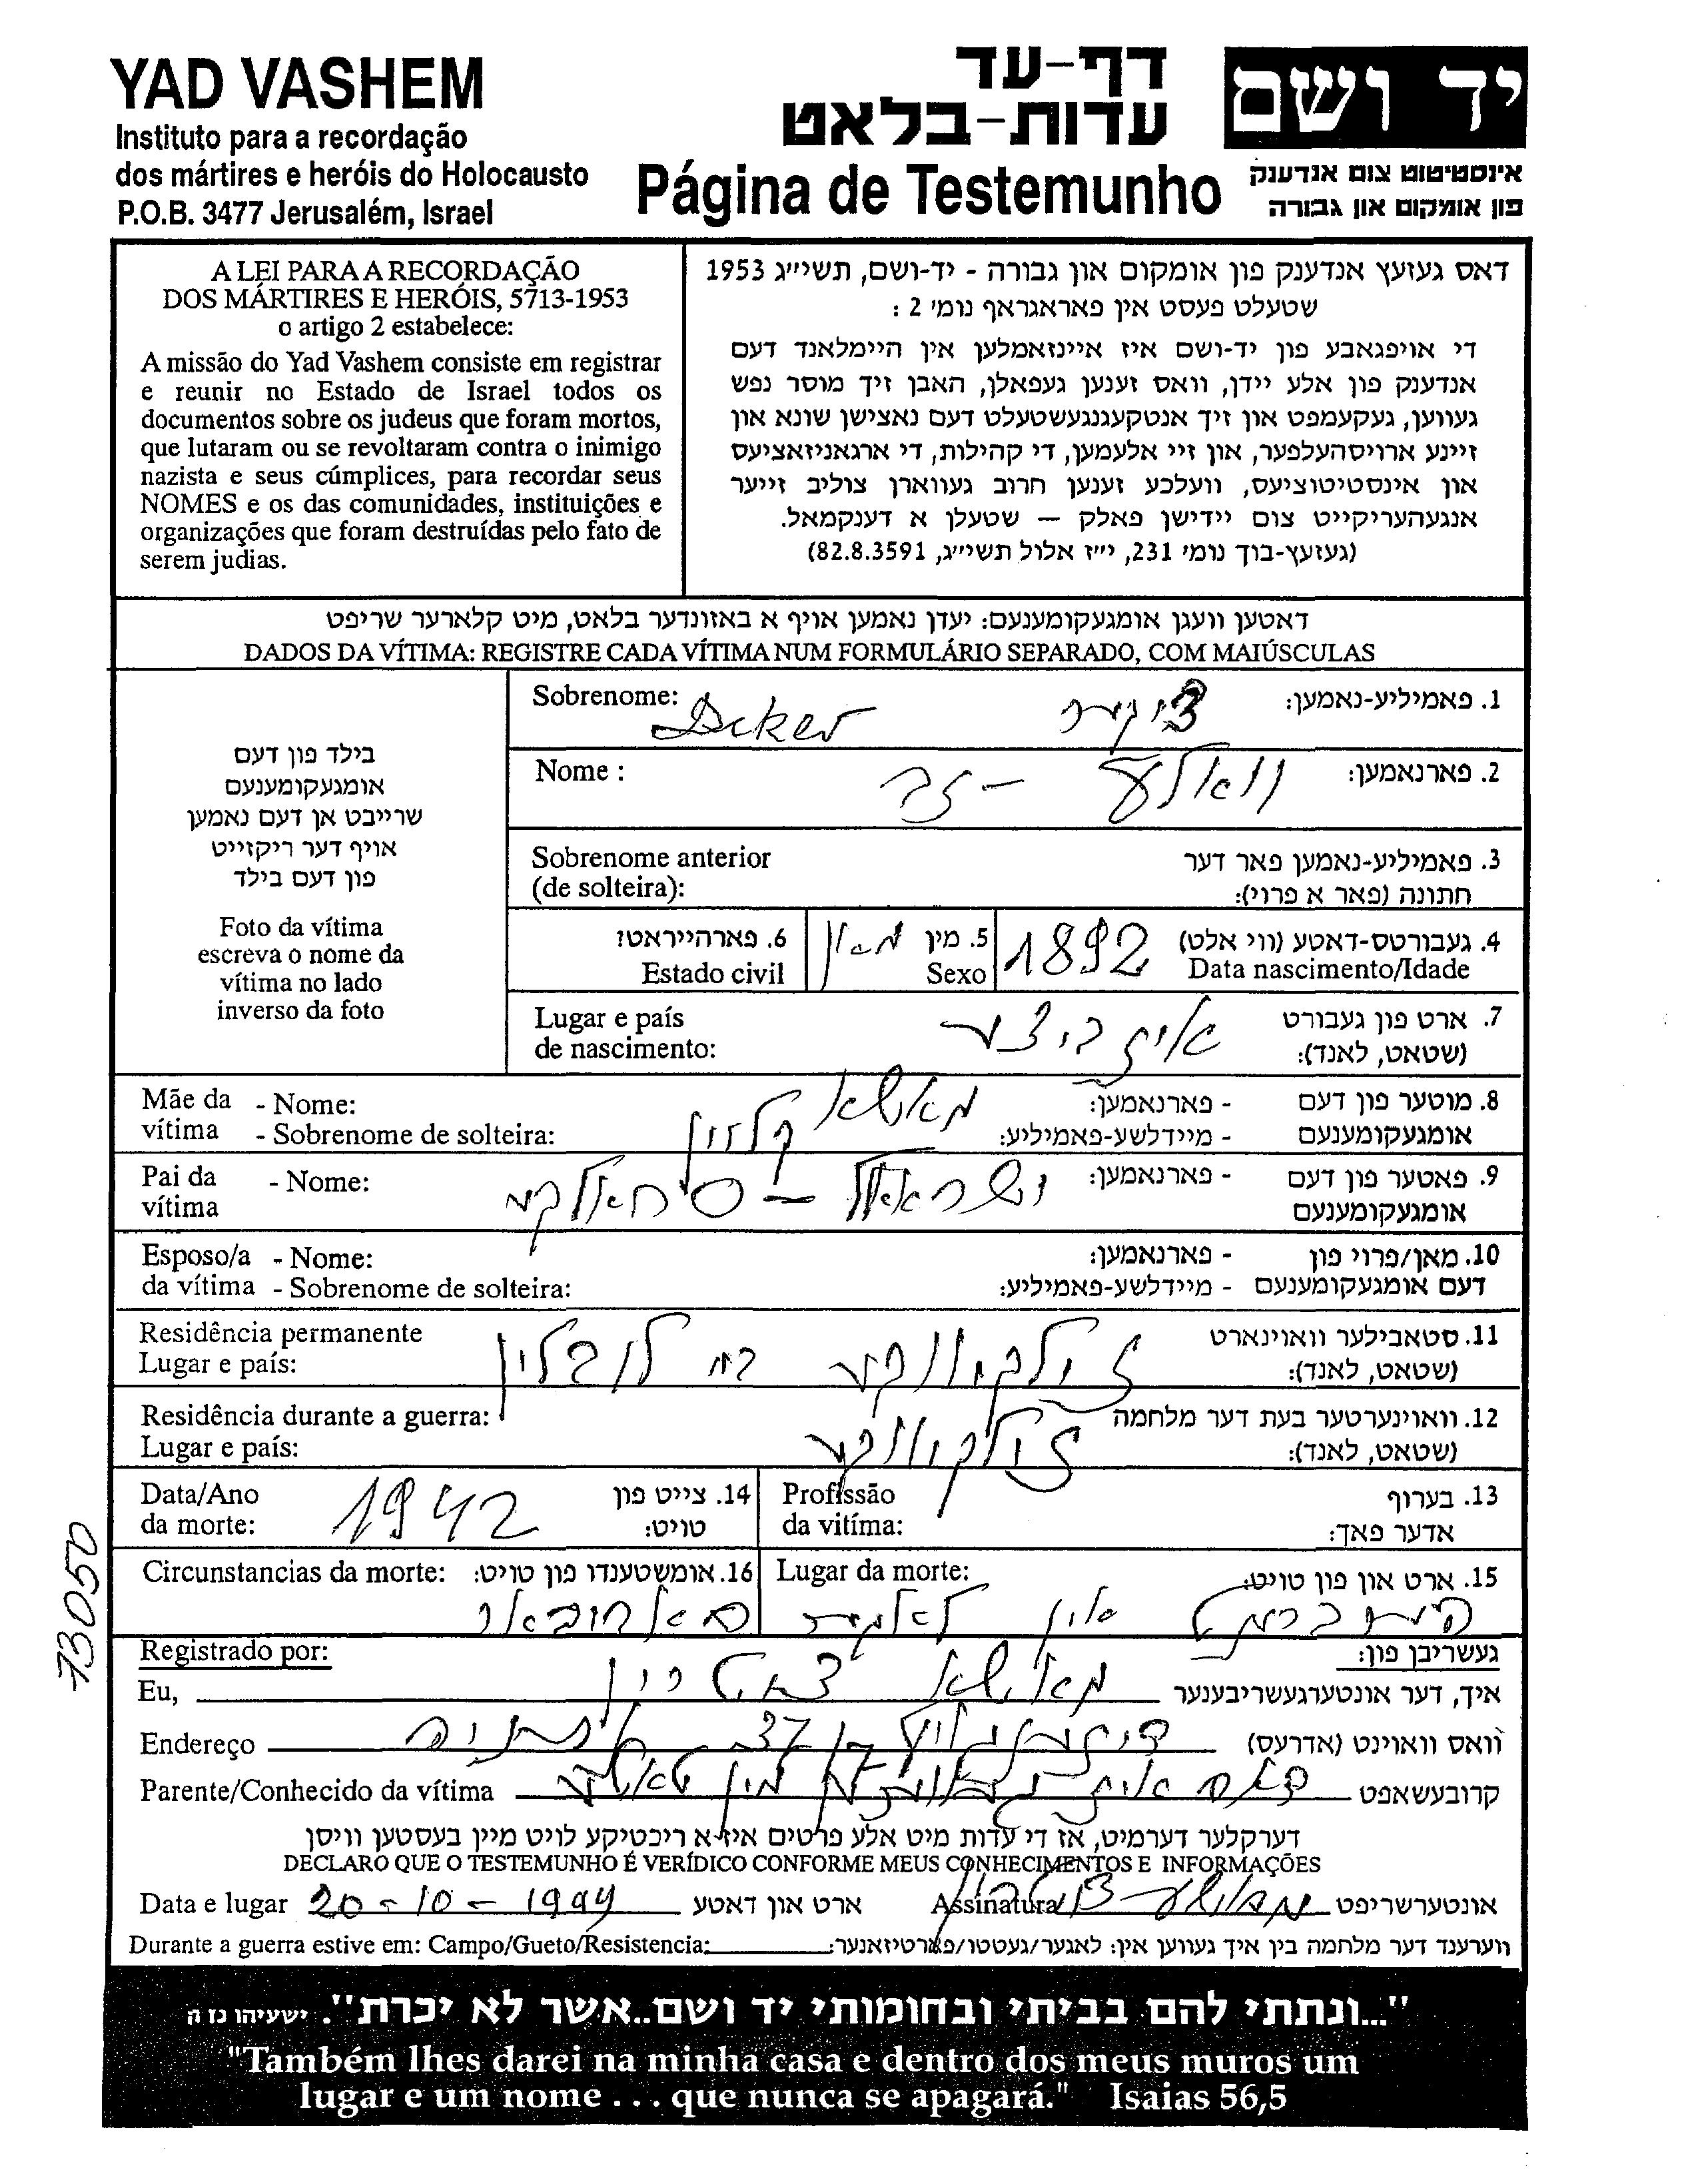 YAD VASHEM
Instituto para a recordação
dos mártires e heróis do Holocausto
P.O.B. 3477 Jerusalém, Israel
דף-עד
עדות-בלאט
Página de Testemunho
יד ושם
אינסטיטוט צום אנדענק
פון אומקום און גבורה
A LEI PARA A RECORDAÇÃO
DOS MÁRTIRES E HERÓIS, 5713-1953
o artigo 2 estabelece:
A missão do Yad Vashem consiste em registrar
e reunir no Estado de Israel todos os
documentos sobre os judeus que foram mortos,
que lutaram ou se revoltaram contra o inimigo
nazista e seus cúmplices, para recordar seus
NOMES e os das comunidades, instituições e
organizações que foram destruídas pelo fato de
serem judias.
דאס געזעץ אנדענק פון אומקום און גבורה - יד-ושם, תשי״ג 1953
שטעלט פעסט אין פאראגראף נומ׳ 2 :
די אויפגאבע פון יד-ושם איז איינזאמלען אין היימלאנד דעם
אנדענק פון אלע יידן, וואס זענען געפאלן, האבן זיך מוסר נפש
געווען, געקעמפט און זיך אנטקעגנגעשטעלט דעם נאצישן שונא און
זיינע ארויסהעלפער, און זיי אלעמען, די קהילות, די ארגאניזאציעס
און אינסטיטוציעס, וועלכע זענען חרוב געווארן צוליב זייער
אנגעהעריקייט צום יידישן פאלק — שטעלן א דענקמאל.
(געזעץ-בוך נומ׳ 231, י״ז אלול תשי״ג, 82.8.3591)
דאטען וועגן אומגעקומענעם: יעדן נאמען אויף א באזונדער בלאט, מיט קלארער שריפט
DADOS DA VÍTIMA: REGISTRE CADA VÍTIMA NUM FORMULÁRIO SEPARADO, COM MAIÚSCULAS
בילד פון דעם
אומגעקומענעם
שרייבט אן דעם נאמען
אויף דער ריקזייט
פון דעם בילד
Foto da vítima
escreva o nome da
vítima no lado
inverso da foto
Sobrenome: 1. פאמיליע-נאמען:
Nome : 2. פארנאמען: וואלע
Sobrenome anterior
(de solteira):
3. פאמיליע-נאמען פאר דער
חתונה (פאר א פרוי):
4. געבורטס-דאטע (ווי אלט)
Data nascimento/Idade 1892
5. מין
Sexo מאן
6. פארהייראט?
Estado civil
Lugar e país
de nascimento:
7. ארט פון געבורט
(שטאט, לאנד): איזביצע
Mãe da vítima - Nome: מאשא
- Sobrenome de solteira:
8. מוטער פון דעם - פארנאמען:
אומגעקומענעם - מיידלשע-פאמיליע:
Pai da vítima - Nome:
9. פאטער פון דעם - פארנאמען:
אומגעקומענעם
Esposo/a - Nome:
da vítima - Sobrenome de solteira:
10. מאן/פרוי פון - פארנאמען:
דעם אומגעקומענעם - מיידלשע-פאמיליע:
Residência permanente
Lugar e país:
11. סטאבילער וואוינארט
(שטאט, לאנד): זולקווקע ביי לובלין
Residência durante a guerra:
Lugar e país:
12. וואוינערטער בעת דער מלחמה
(שטאט, לאנד): זולקווקע
Data/Ano
da morte: 1942
14. צייט פון
טויט:
Profissão
da vitíma:
13. בערוף
אדער פאך:
Circunstancias da morte: 16. אומשטענדן פון טויט:
Lugar da morte: 15. ארט און פון טויט:
Registrado por: געשריבן פון:
Eu, איך, דער אונטערגעשריבענער
Endereço וואס וואוינט (אדרעס)
Parente/Conhecido da vítima קרובעשאפט
דערקלער דערמיט, אז די עדות מיט אלע פרטים איז א ריכטיקע לויט מיין בעסטען וויסן
DECLARO QUE O TESTEMUNHO É VERÍDICO CONFORME MEUS CONHECIMENTOS E INFORMAÇÕES
Data e lugar 20-10-1994 ארט און דאטע Assinatura אונטערשריפט
Durante a guerra estive em: Campo/Gueto/Resistencia: ווערענד דער מלחמה בין איך געווען אין: לאגער/געטטו/פארטיזאנער:
73050
"...ונתתי להם בביתי ובחומותי יד ושם..אשר לא יכרת". ישעיהו נז ה
"Também lhes darei na minha casa e dentro dos meus muros um
lugar e um nome . . . que nunca se apagará." Isaias 56,5